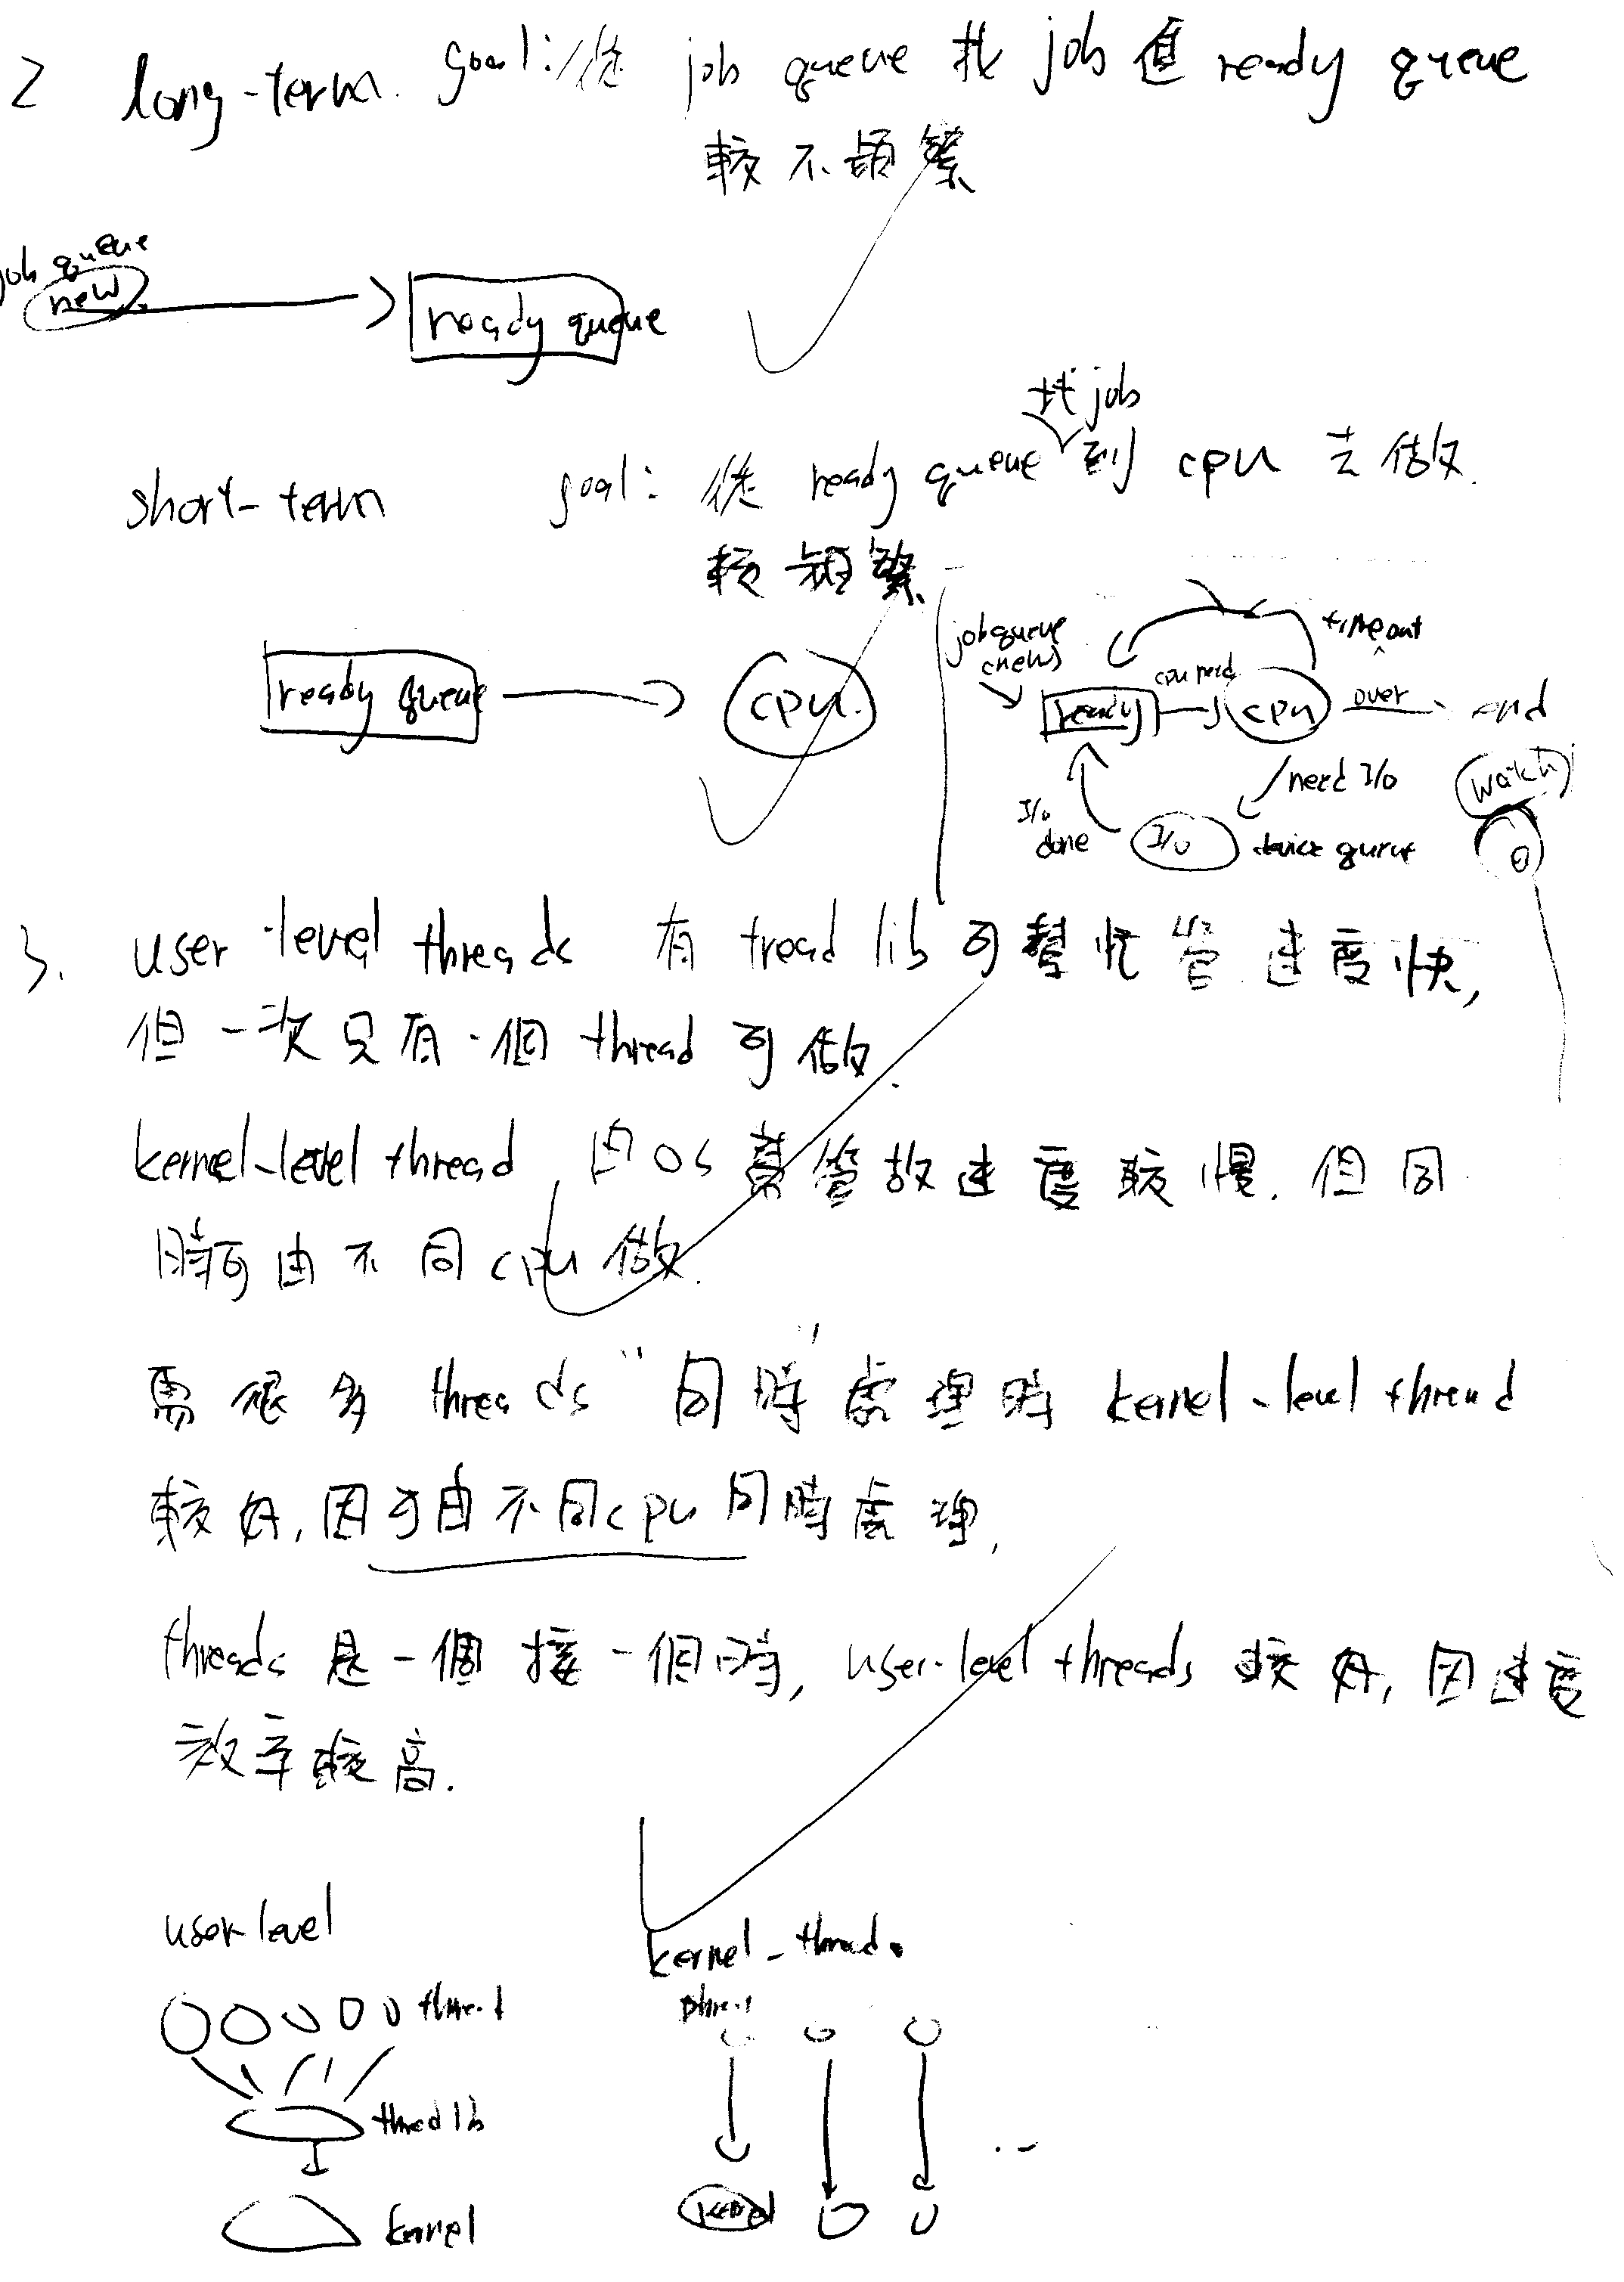 2 long-term. goal: 從 job queue 找 job 值 ready queue
較不頻繁
job queue
new
ready queue
找 job
short-term goal: 從 ready queue 到 cpu 去做.
較頻繁
ready queue
cpu.
job queue
(new)
timeout
ready
cpu
over
end
need I/O
I/O
done
I/O
device queue
3. user-level threads 有 tread lib 可幫忙管 速度快,
但一次只有一個 thread 可做.
kernel-level thread, 由OS 管故速度較慢. 但同
時可由不同cpu做.
需很多 threads "同時"處理時 kernel-level thread
較好, 因可由不同cpu同時處理,
threads 是一個接一個時, user-level threads 較好, 因速度
效率較高.
user-level
thread
thred lib
kernel
kernel-thread
kernel